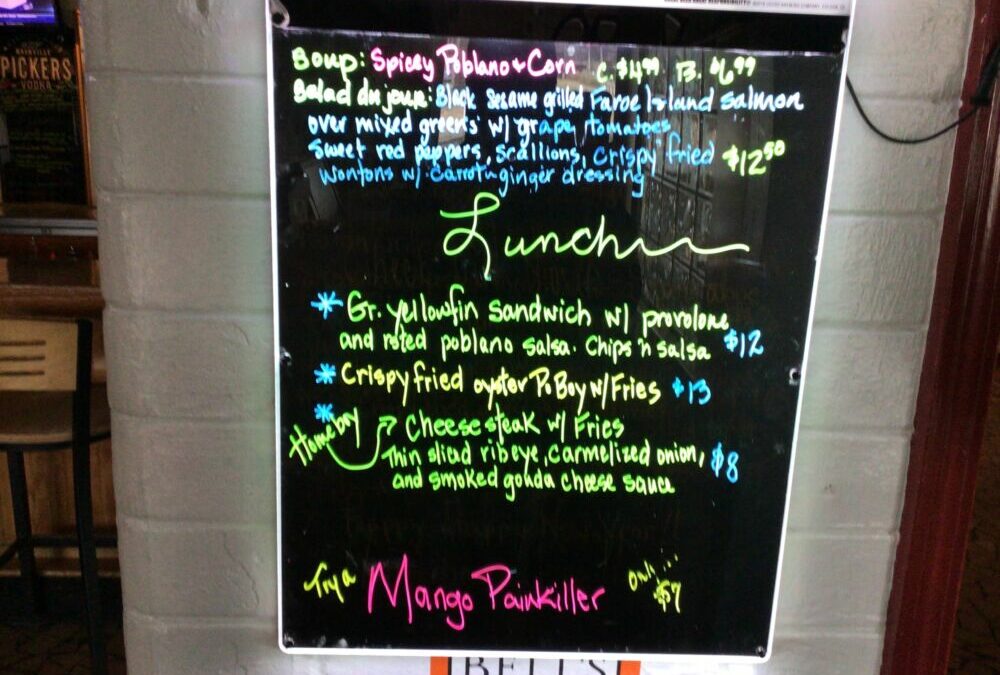 PICKERS
VODKA
Soup: Spicey Poblano + Corn C. $4.99 B. $6.99
Salad du jour: Black Sesame grilled Faroe Island salmon
over mixed greens w/ grape tomatoes
sweet red peppers, scallions, crispy fried $12.50
wontons w/ carrot ginger dressing
Lunch
* Gr. yellowfin sandwich w/ provolone
and rsted poblano salsa. Chips 'n salsa $12
* Crispy fried oyster Po Boy w/ Fries $13
* Homeboy Cheesesteak w/ Fries
Thin sliced ribeye, carmelized onion, $8
and smoked gouda cheese sauce
Try a Mango Painkiller only... $7
BELL'S